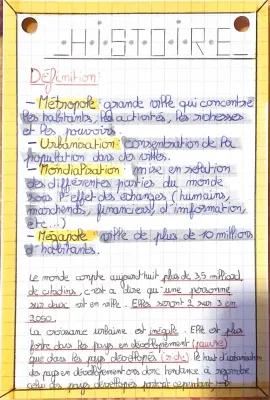 HISTOIRE
Définition:
- Métropole: grande ville qui concentre
les habitants, les activités, les richesses
et les pouvoirs.
- Urbanisation: concentration de la
population dans des villes.
- Mondialisation: mise en relation
des différentes parties du monde
sous l'effet des échanges (humains,
marchands, financiers, d'information,
etc...)
- Mégapole: ville de plus de 10 millions
d'habitants.
Le monde compte aujourd'hui plus de 3,5 milliard
de citadins, c'est à dire qu'une personne
sur deux vit en ville. Elles seront 2 sur 3 en
2050.
La croissance urbaine est inégale. Elle est plus
forte dans les pays en développement (pauvre)
que dans les pays développés (riche) le taux d'urbanisation
des pays en développement ont donc tendance à
celui des pays développés partout cependant,